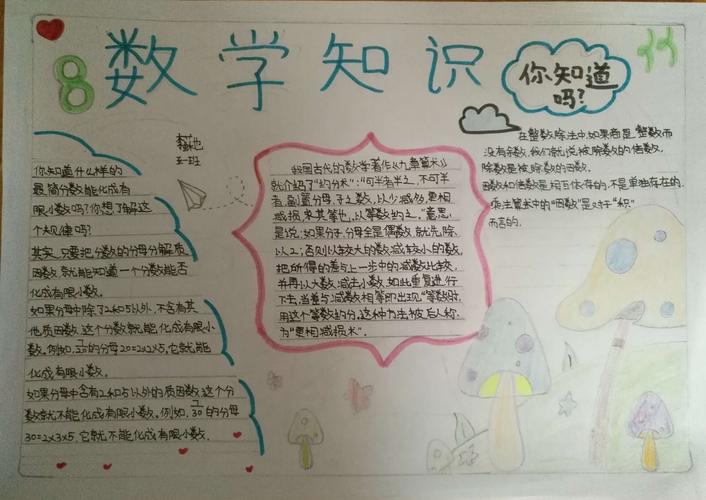 8
数学知识
你知道
吗?
五一班
你知道什么样的
最简分数能化成有
限小数吗?你想了解这
个规律吗?
其实,只要把分数的分母分解质
因数,就能知道一个分数能否
化成有限小数。
如果分母中除了2和5以外,不含有其
他质因数,这个分数就能化成有限小
数。例如,的分母20=2×2×5,它就能
化成有限小数。
如果分母中含有2和5以外的质因数,这个分
数就不能化成有限小数。例如,7/30的分母
30=2×3×5,它就不能化成有限小数.
我国古代的数学著作《九章算术》
就介绍了"约分术":"可半者半之,不可半
者,副置分母、子之数,以少减多,更相
减损,求其等也,以等数约之。"意思
是说:如果分子、分母全是偶数,就先除
以2;否则以较大的数减较小的数,
把所得的差与上一步中的减数比较,
并再以大数减去小数,如此重复进行
下去,当差与减数相等即出现"等数"时,
用这个等数约分,这种方法被后人称
为"更相减损术".
在整数除法中,如果商是整数而
没有余数,我们就说被除数的倍数,
除数是被除数的因数。
因数和倍数是相互依存的,不是单独存在的.
乘法算术中的"因数"是对于"积"
而言的.